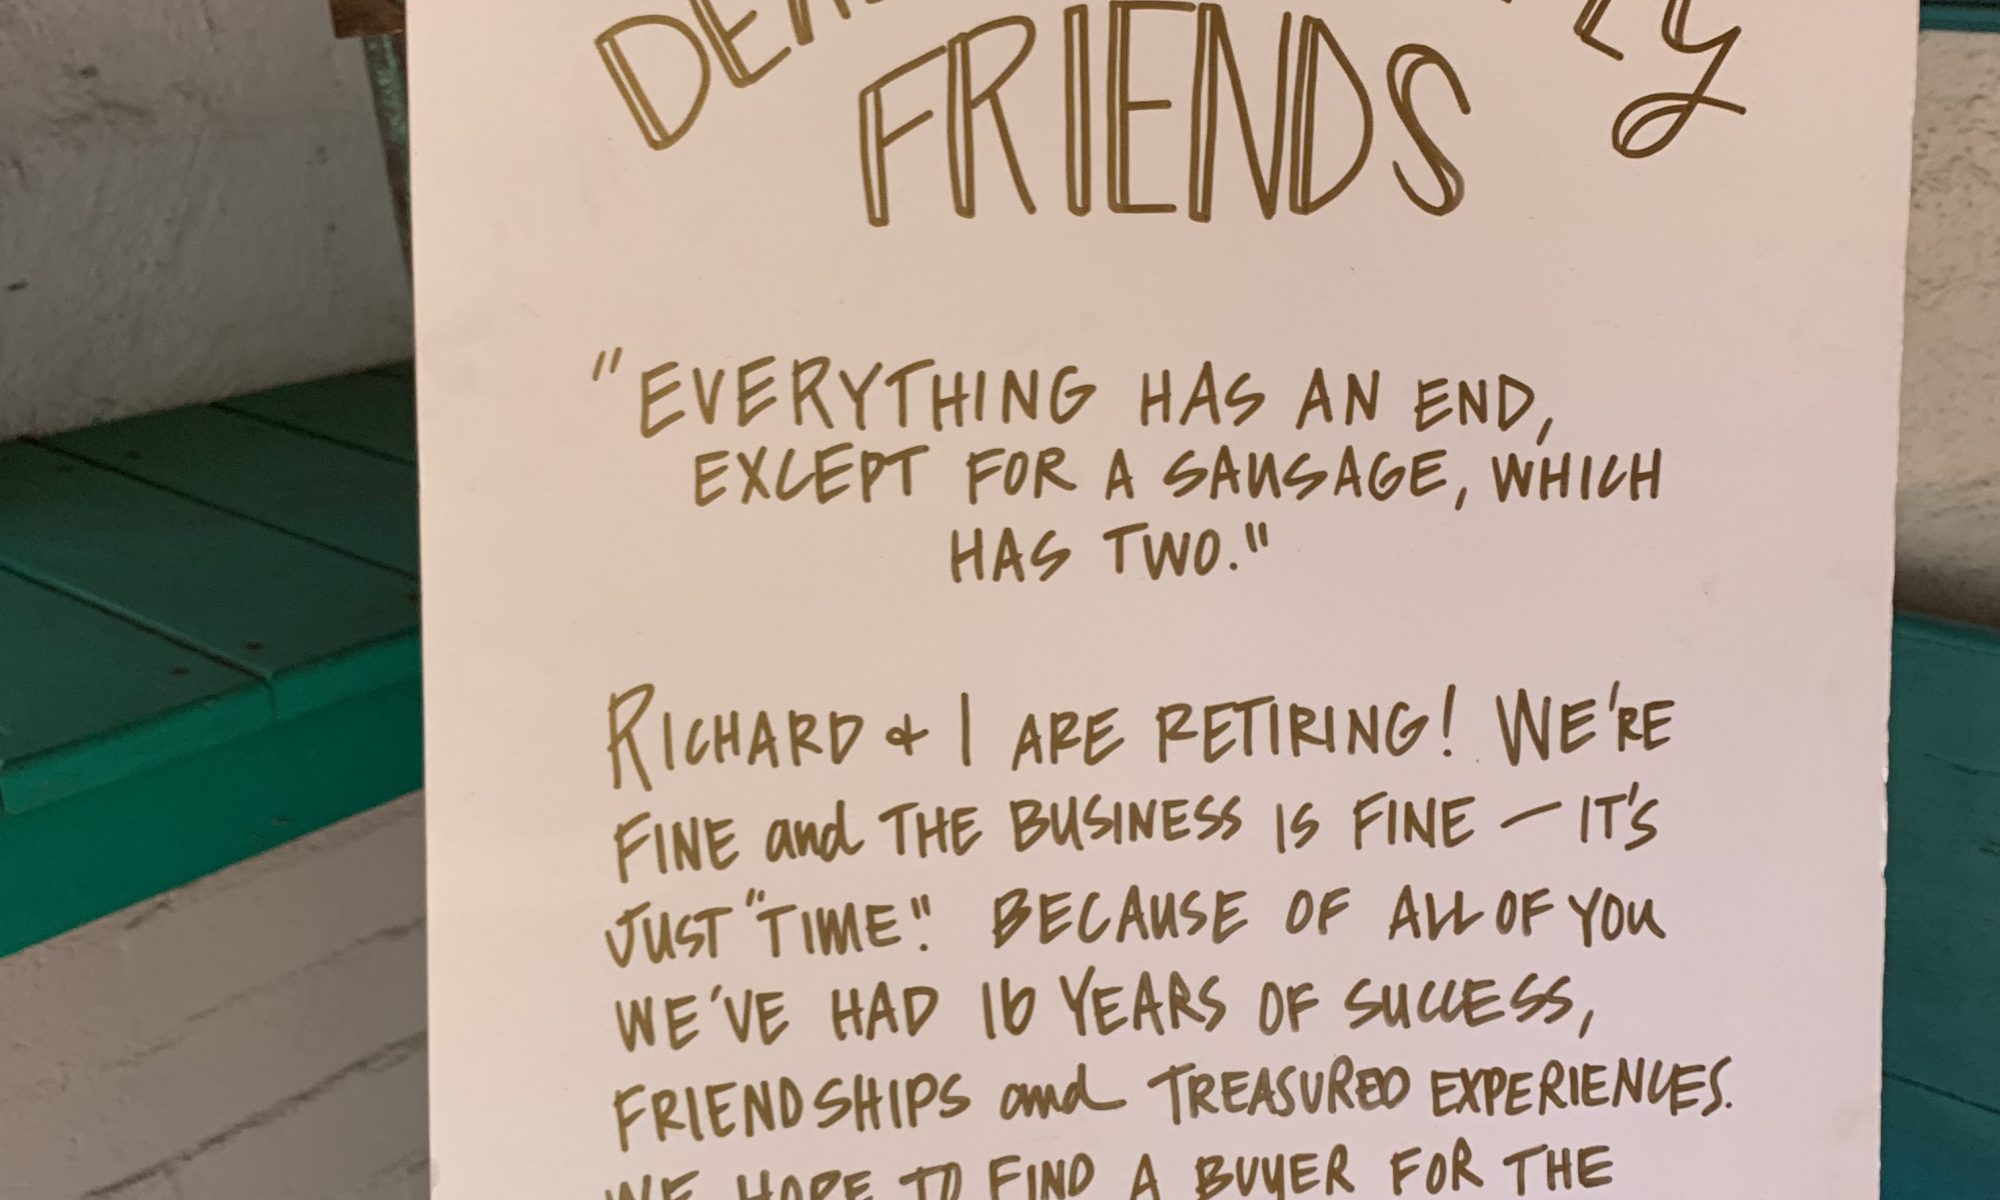 FRIENDS
"EVERYTHING HAS AN END,
EXCEPT FOR A SAUSAGE, WHICH
HAS TWO."
RICHARD & I ARE RETIRING! WE'RE
FINE and THE BUSINESS IS FINE — IT'S
JUST "TIME". BECAUSE OF ALL OF YOU
WE'VE HAD 16 YEARS OF SUCCESS,
FRIENDSHIPS and TREASURED EXPERIENCES.
WE HOPE TO FIND A BUYER FOR THE